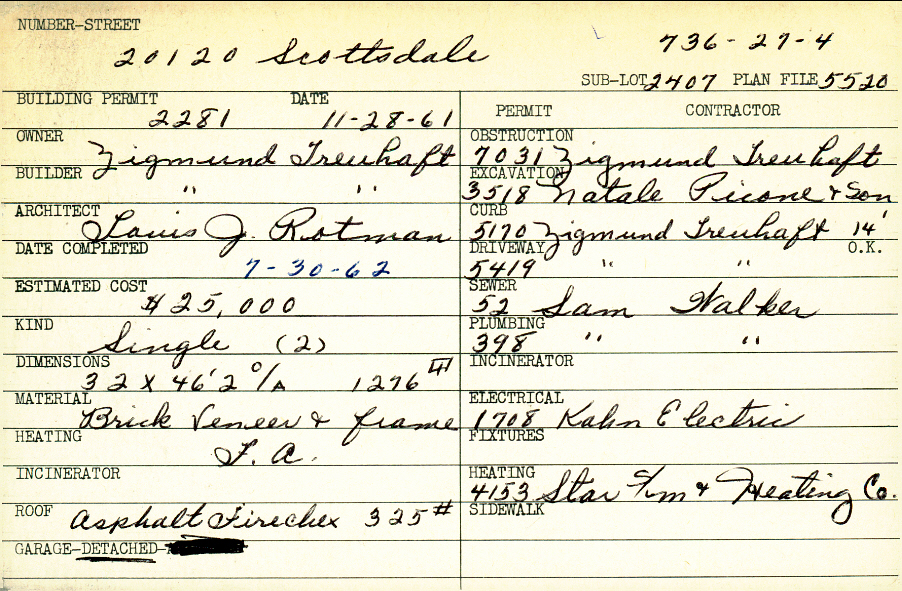 NUMBER-STREET
20120 Scottsdale 736-27-4
SUB-LOT 2407 PLAN FILE 5520
BUILDING PERMIT DATE
2281 11-28-61
PERMIT CONTRACTOR
OWNER
Zigmund Treuhaft
BUILDER
" "
ARCHITECT
Louis J. Rotman
DATE COMPLETED
7-30-62
ESTIMATED COST
$25,000
KIND
Single (2)
DIMENSIONS
32 X 46'2 O/A 1276
MATERIAL
Brick Veneer & frame
HEATING
F. A.
INCINERATOR
ROOF Asphalt Firechex 325#
GARAGE-DETACHED-
OBSTRUCTION
7031 Zigmund Treuhaft
EXCAVATION
3518 Natale Picone & Son
CURB
5170 Zigmund Treuhaft 14'
DRIVEWAY O.K.
5419 " "
SEWER
52 Sam Walker
PLUMBING
398 " "
INCINERATOR
ELECTRICAL
1708 Kahn Electric
FIXTURES
HEATING
4153 Star & Heating Co.
SIDEWALK